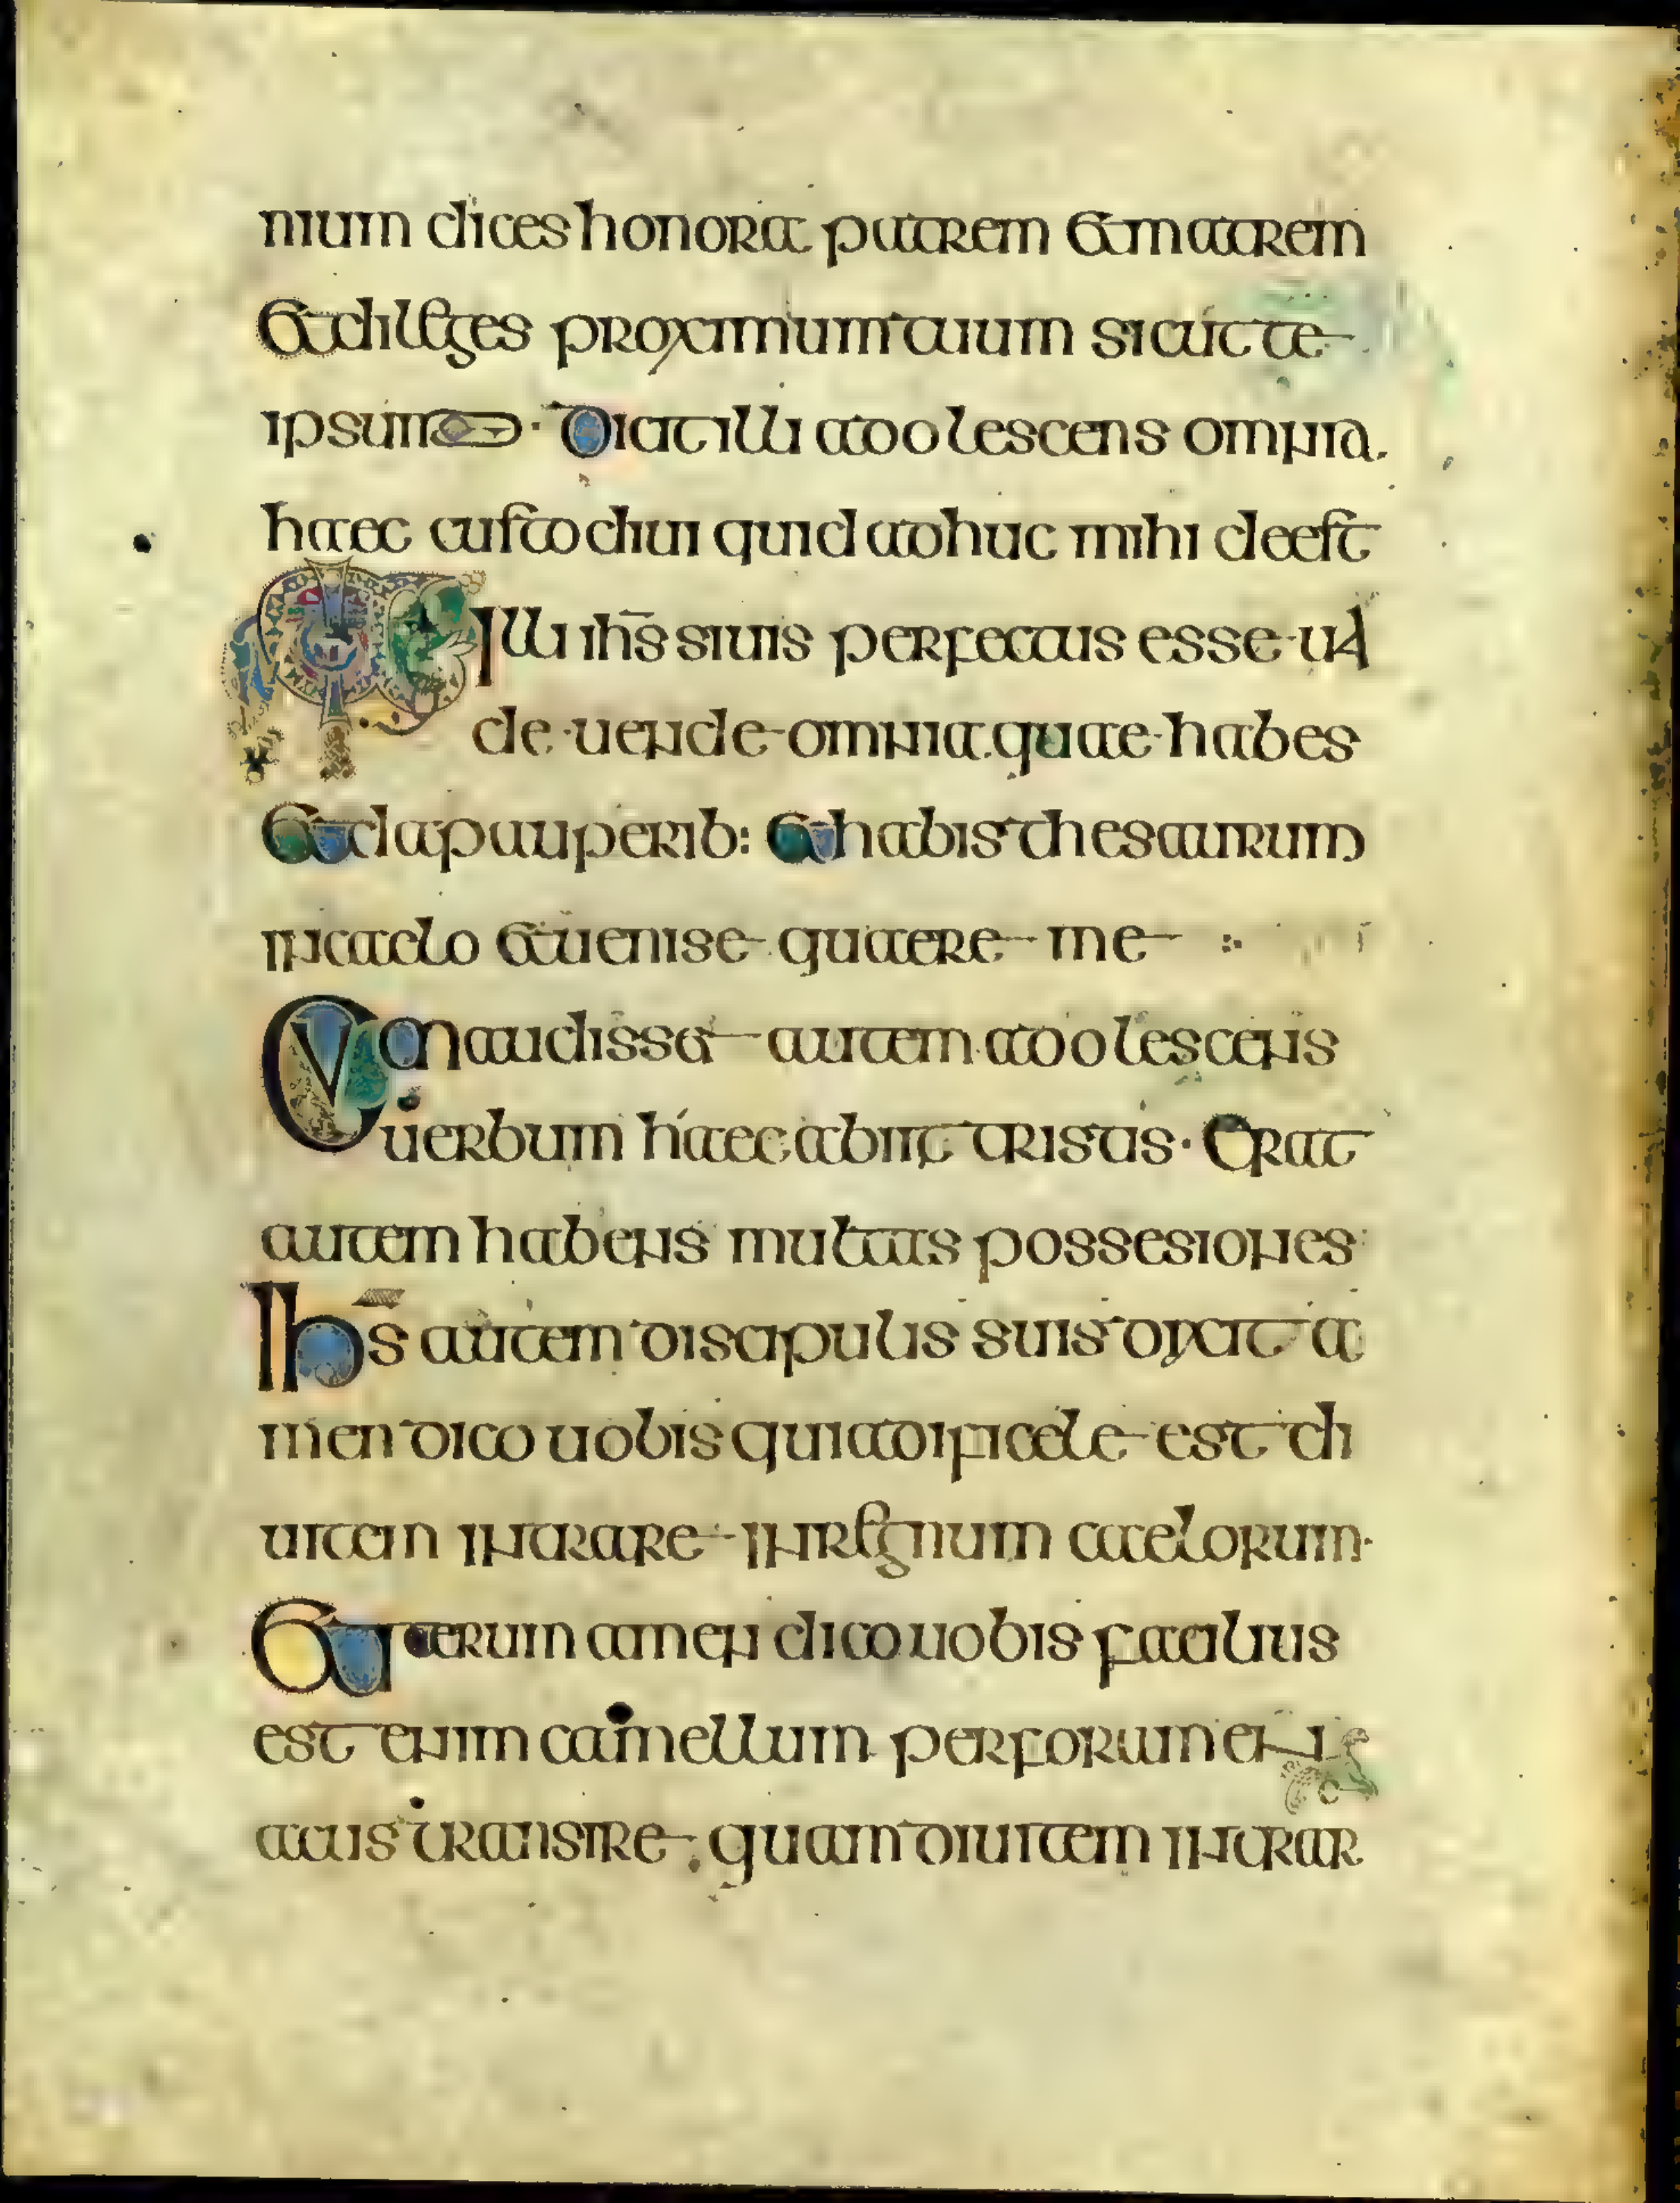 nium dices honora patrem et matrem
et dileges proximum tuum sicut te
ipsum · Dicit illi adolescens omnia.
haec custodiui quid adhuc mihi deest
Ait illi ihs̄ si uis perfectus esse ua
de uende omnia quae habes
et da pauperib: et habis thesaurum
in caelo et ueni se quaere me :·
Cum audisset autem adolescens
uerbum haec abiit tristis · Erat
autem habens multas possesiones
Ihs̄ autem discipulis suis dixit a
men dico uobis quia dificele est di
uitem intrare in regnum caelorum ·
Et iterum amen dico uobis facilius
est enim camellum per foramen
acus transire quam diuitem intrar